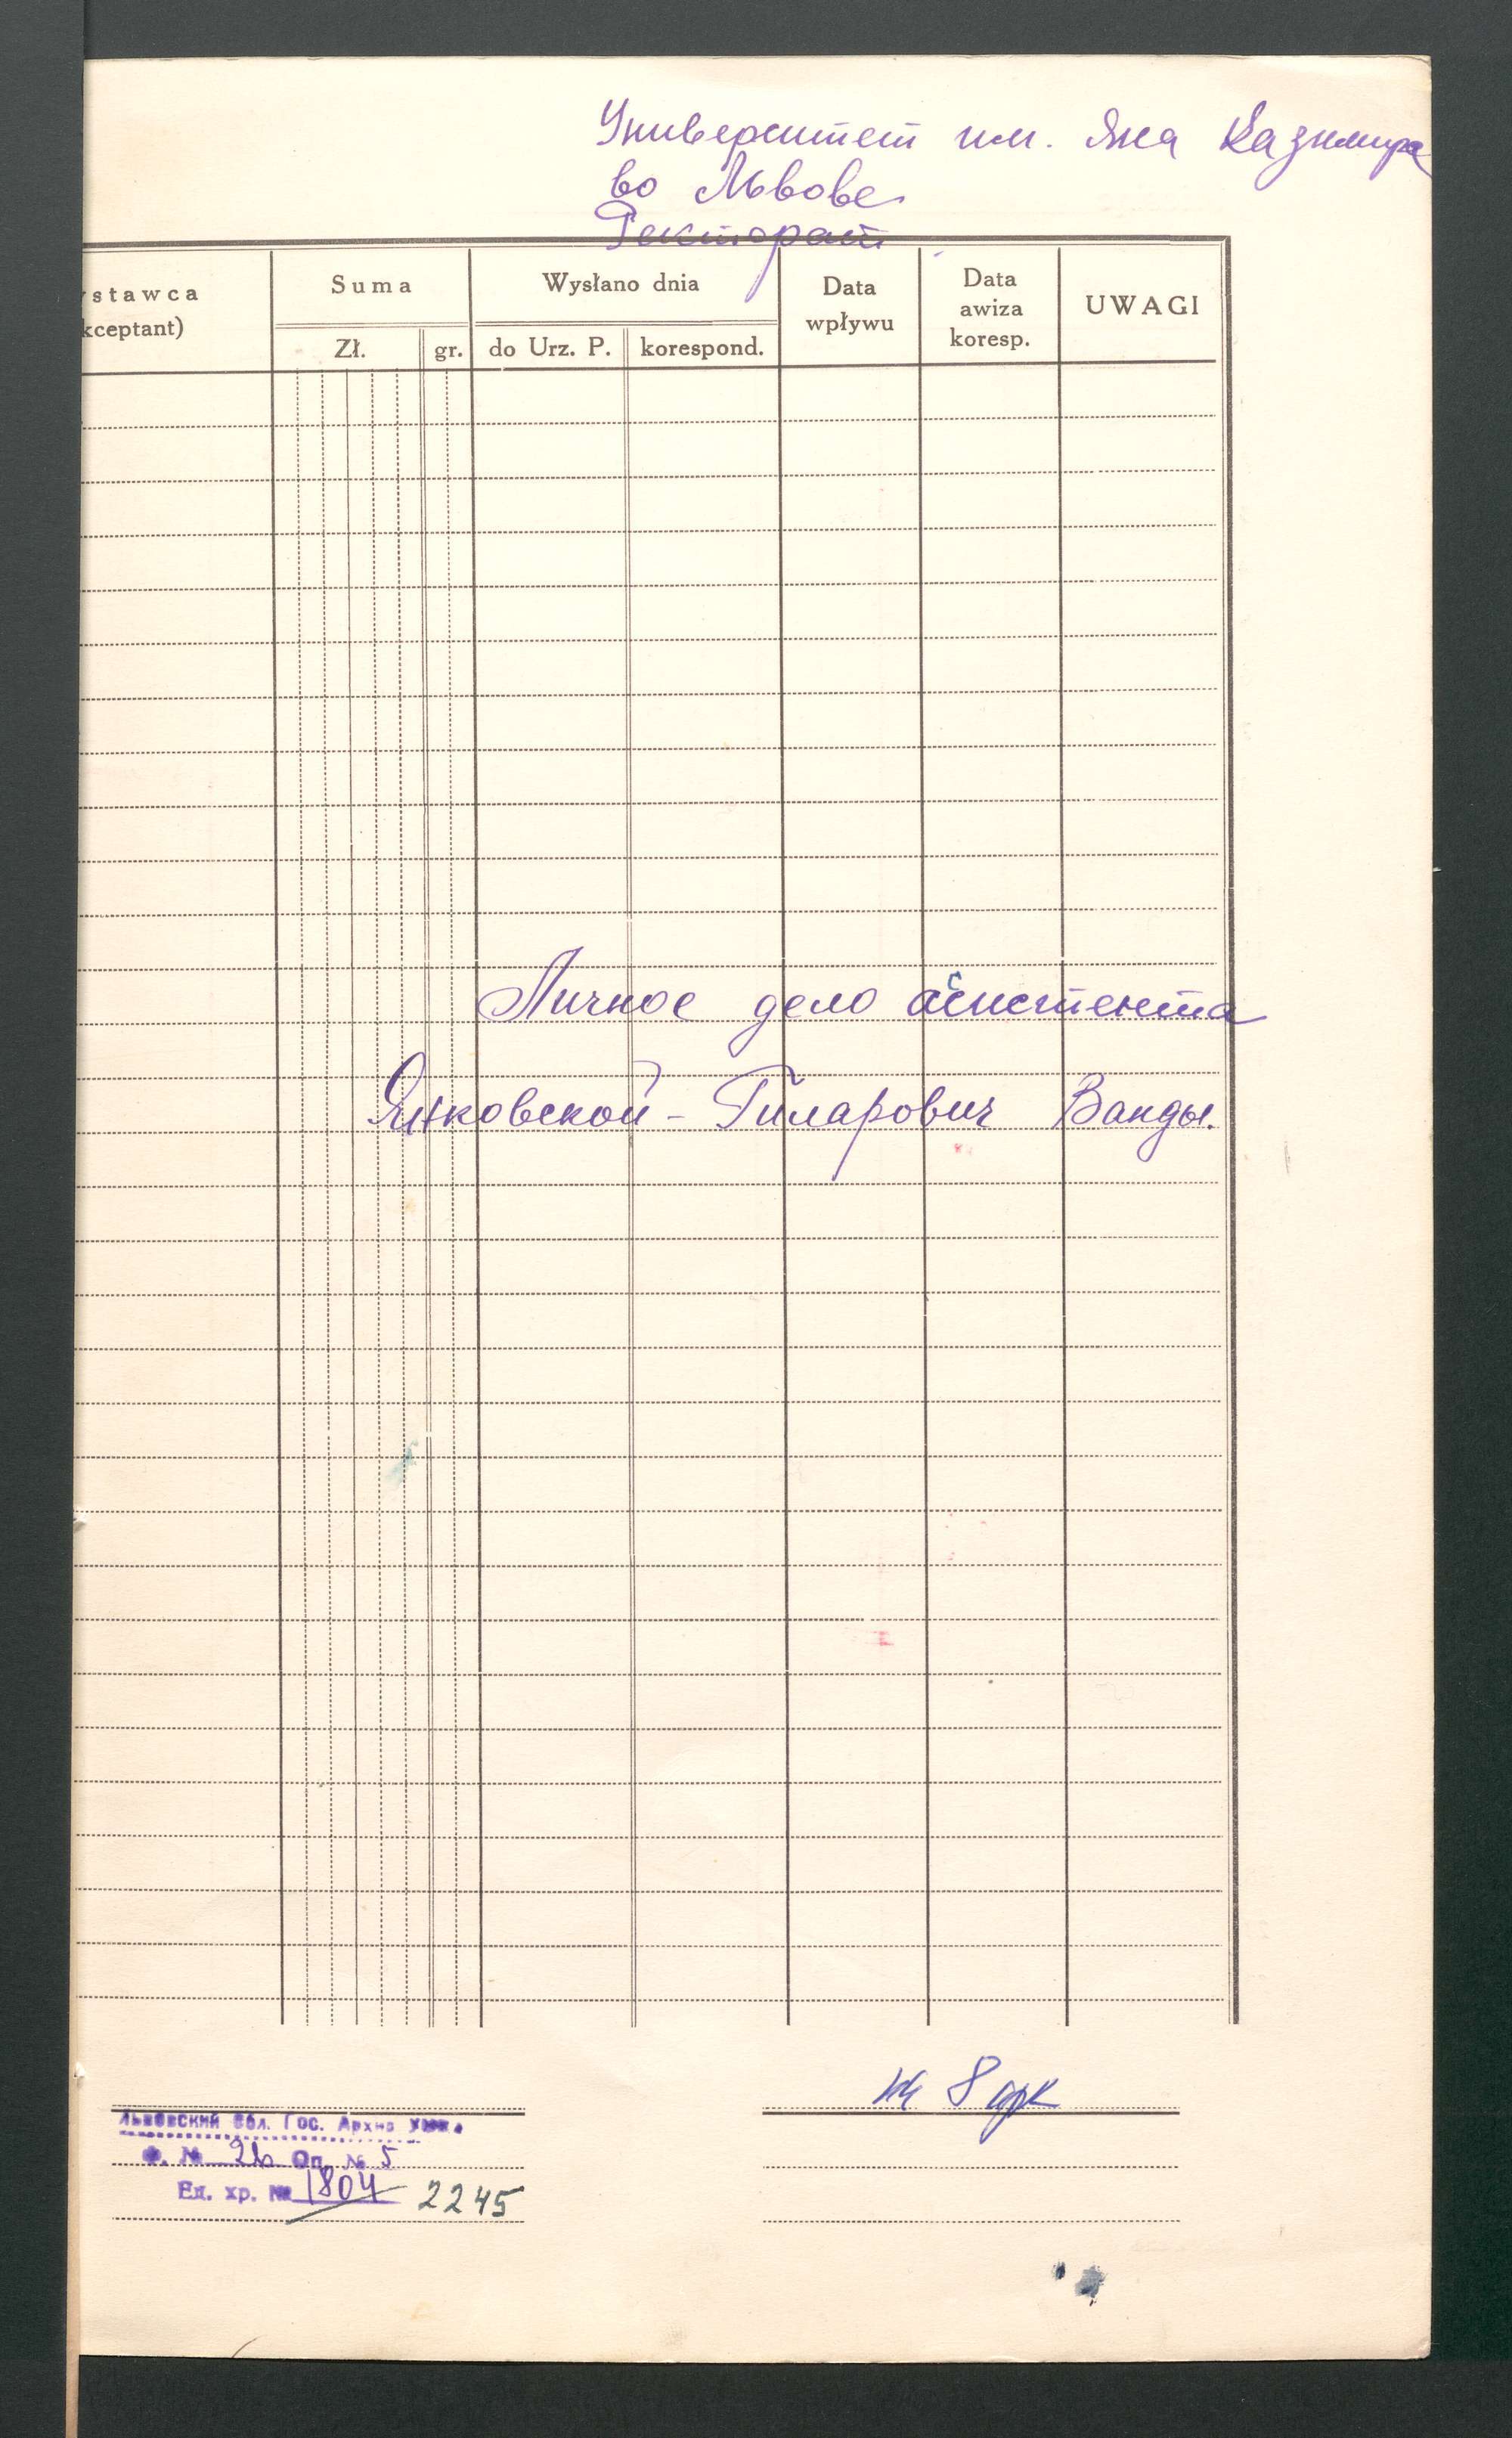 Университет им. Яна Казимира
во Львове
Ректорат
stawca
kceptant)
Suma
Zł.
gr.
Wysłano dnia
do Urz. P.
korespond.
Data
wpływu
Data
awiza
koresp.
UWAGI
Личное дело ассистента
Янковской - Гиларович Ванды.
на 8 арк
Львовский Обл. Гос. Архив
Ф. № 26 Оп. № 5
Ед. хр. № 1804 2245